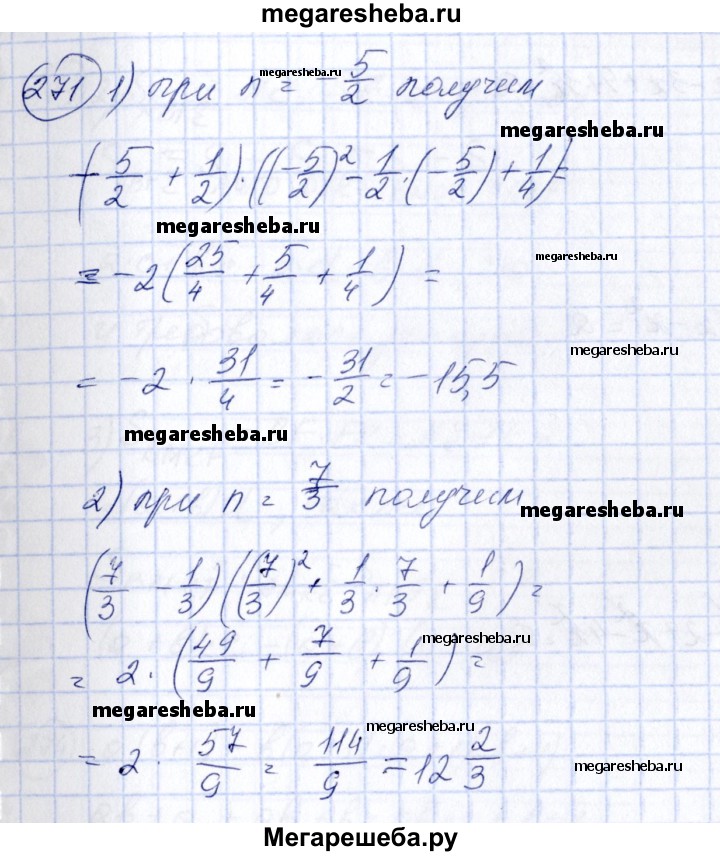 megaresheba.ru
271 1) при n = -5/2 получим
megaresheba.ru
megaresheba.ru
(-5/2 + 1/2)·((-5/2)² - 1/2·(-5/2) + 1/4) =
megaresheba.ru
= -2(25/4 + 5/4 + 1/4) =
megaresheba.ru
= -2 · 31/4 = -31/2 = -15,5
megaresheba.ru
megaresheba.ru
2) при n = 7/3 получим
megaresheba.ru
(7/3 - 1/3)((7/3)² + 1/3 · 7/3 + 1/9) =
= 2·(49/9 + 7/9 + 1/9) =
megaresheba.ru
megaresheba.ru
megaresheba.ru
= 2 · 57/9 = 114/9 = 12 2/3
megaresheba.ru
Мегарешеба.ру